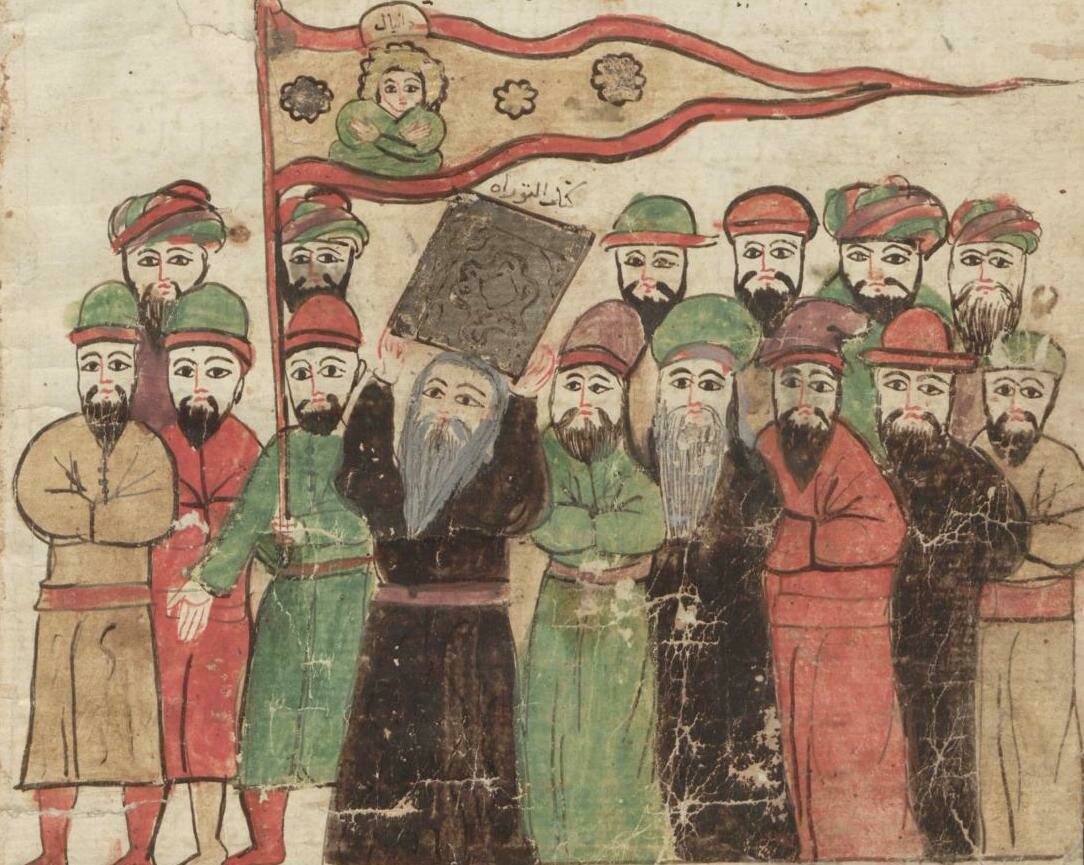 دانيال
كتاب التوراه